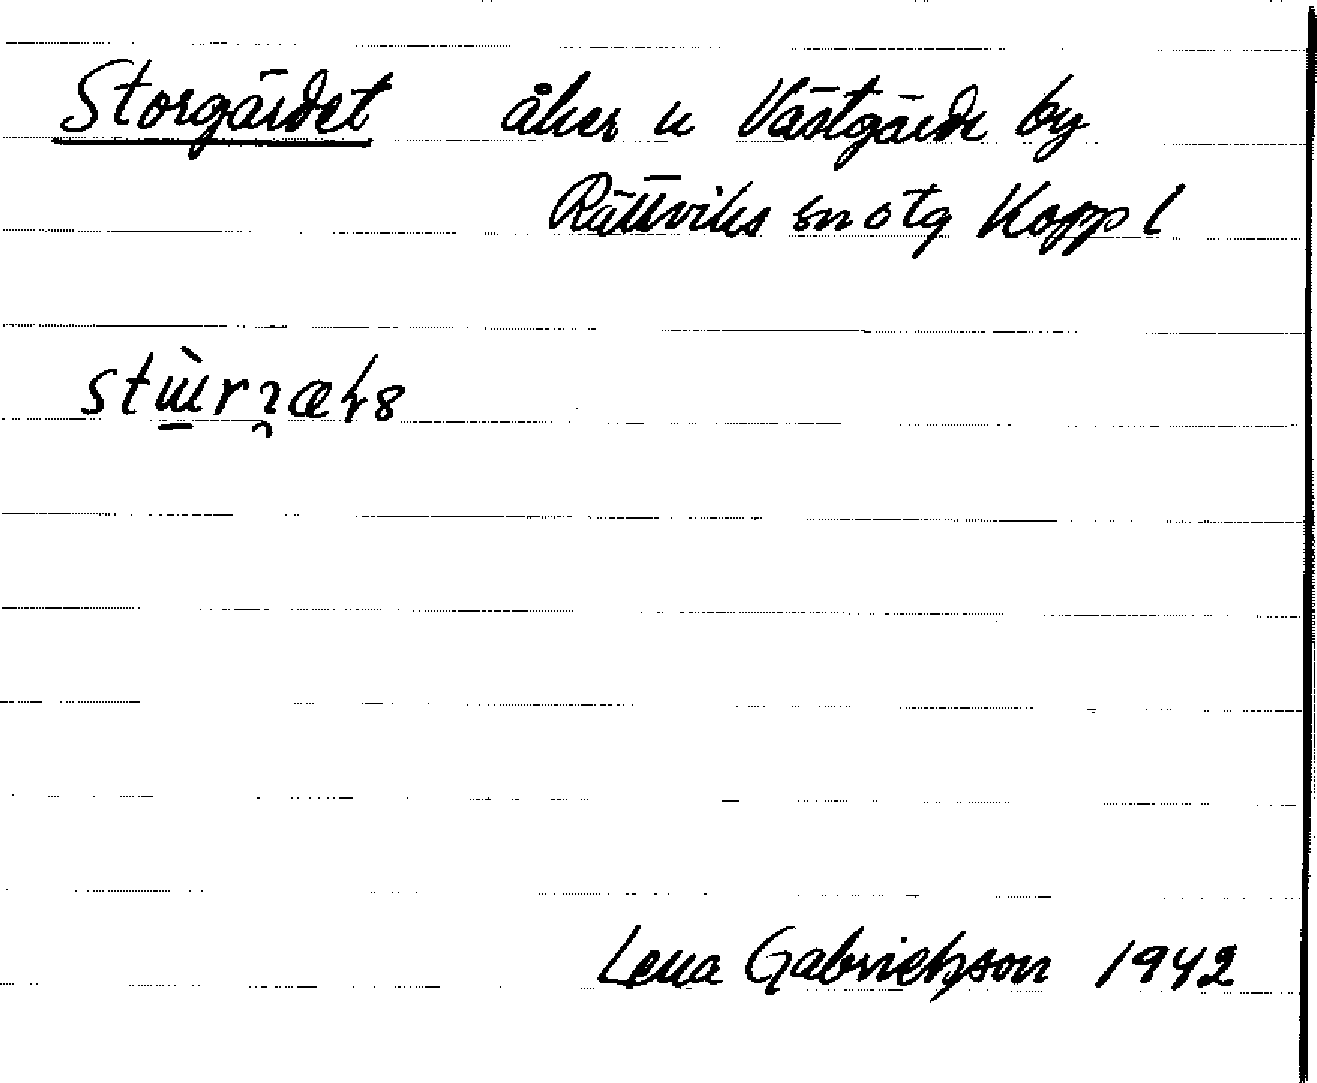 Storgärdet åker u Västgärde by
Rättviks sn o tg Koppl
Lena Gabrielsson 1942